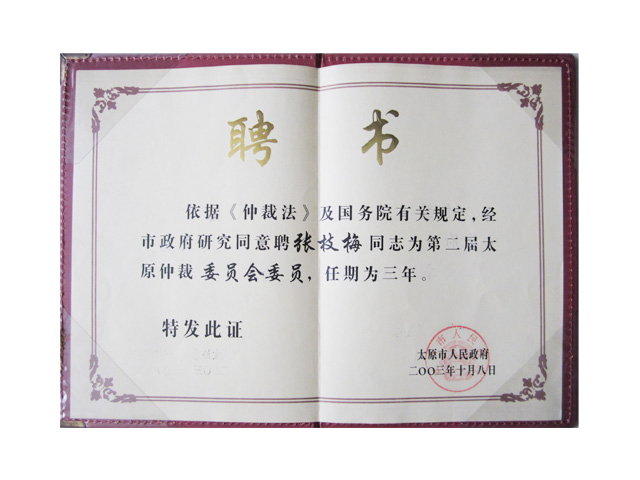 聘书
依据《仲裁法》及国务院有关规定，经
市政府研究同意聘张枝梅同志为第二届太
原仲裁委员会委员，任期为三年。
特发此证
太原市人民政府
二〇〇三年十月八日